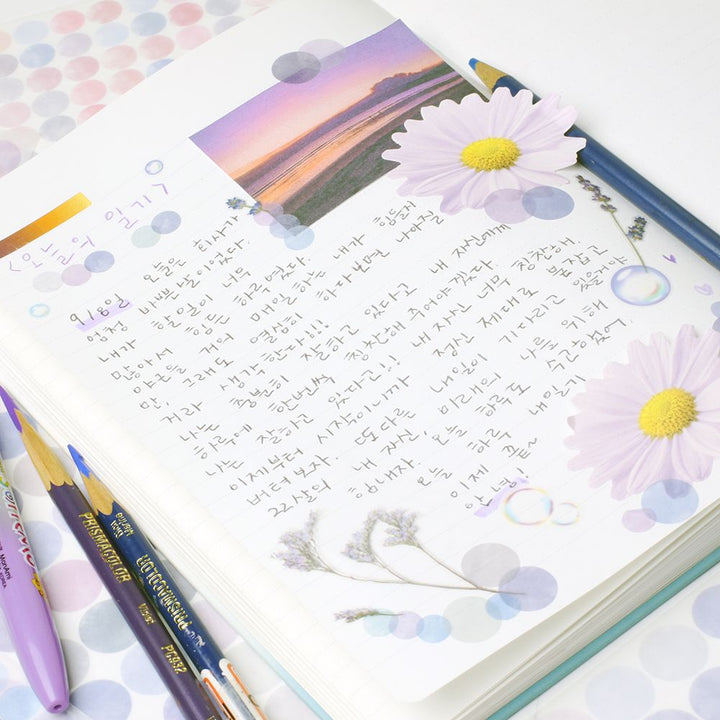 <오늘의 일기>
9/8일 오늘은 회사가
엄청 바쁜 날이었다.
내가 할일이 너무
많아서 힘든 하루였다.
야근은 거의 매일하는 내가 힘들지
만, 그래도 열심히 하다보면 나아질
거라 생각한다!!!
나는 충분히 잘하고 있다고 내 자신에게
하루에 한번씩 칭찬해 주어야겠다.
나는 잘하고 있다고!! 내 자신 너무 칭찬해.
이제부터 시작이니까 정신 제대로 붙잡고
버텨보자. 또다른 내일이 기다리고 있을거야
22살의 내 자신, 미래의 나를 위해
힘내자. 오늘 하루도 수고했어.
오늘 하루 내일기
이제 끝~
안녕!
PRISMACOLOR
PC932
PRISMACOLOR